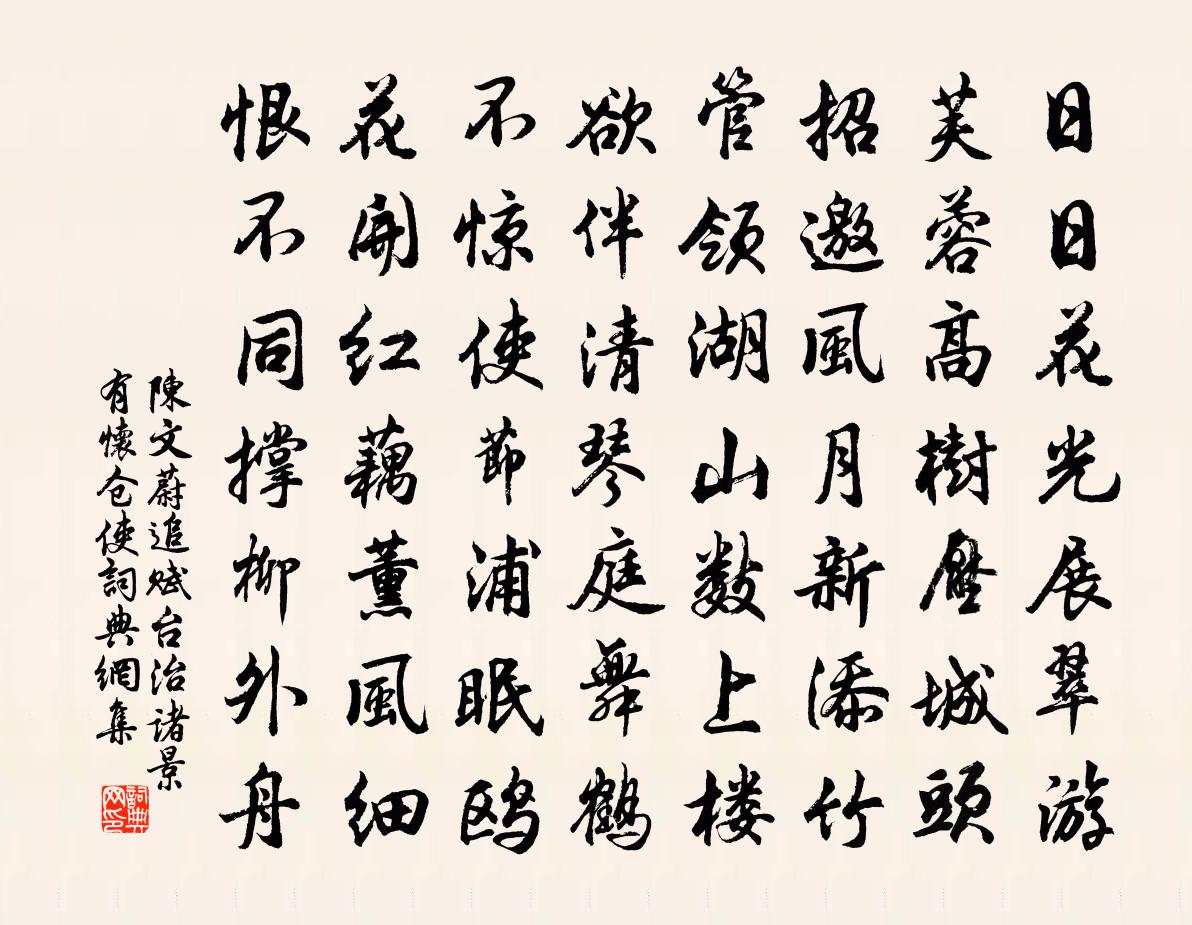 日日花光展翠游
芙蓉高樹壓城頭
招邀風月新添竹
管領湖山數上楼
欲伴清琴庭舞鶴
不惊使節浦眠鸥
花開红藕薰風细
恨不同撑柳外舟
陳文蔚追赋台治诸景
有懷仓使詞典網集
詞典
网印